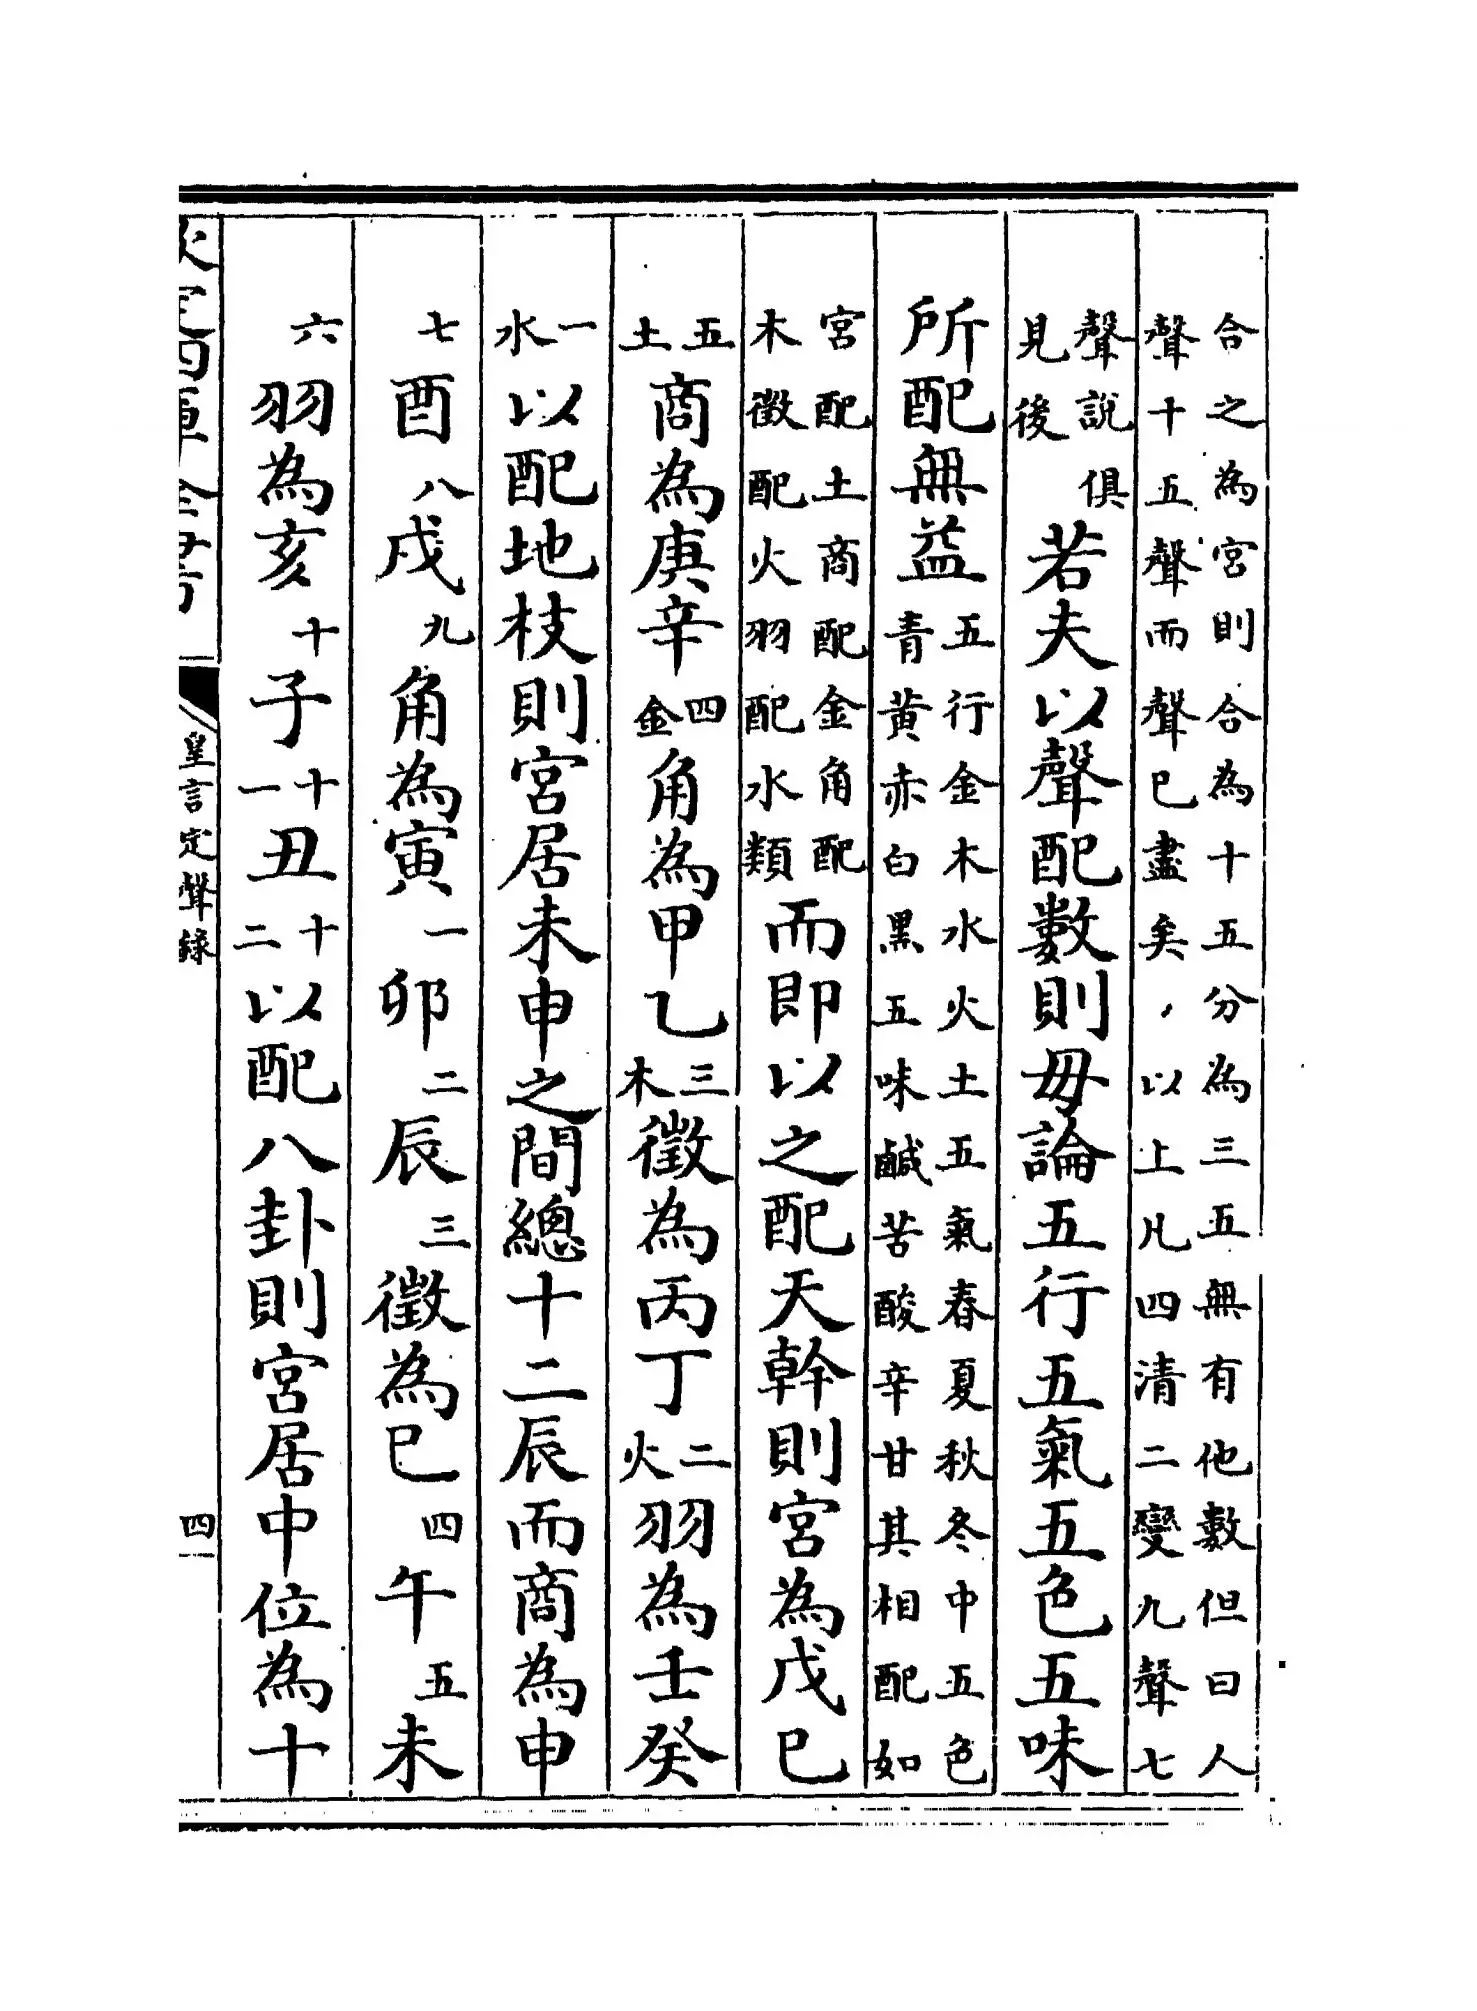 合之為宮則合為十五分為三五無有他數但曰人
聲十五聲而聲已盡矣、以上凡四清二變九聲七
聲說俱
見後
若夫以聲配數則毋論五行五氣五色五味
所配無益
五行金木水火土五氣春夏秋冬中五色
青黄赤白黒五味鹹苦酸辛甘其相配如
宮配土商配金角配
木徵配火羽配水類
而即以之配天幹則宮為戊己
五土商為庚辛四金角為甲乙三木徵為丙丁二火羽為壬癸
一水以配地枝則宮居未申之間總十二辰而商為申
七酉八戌九角為寅一卯二辰三徵為巳四午五未
六羽為亥十子十一丑十二以配八卦則宮居中位為十
欽定四庫全書
皇言定聲錄
四